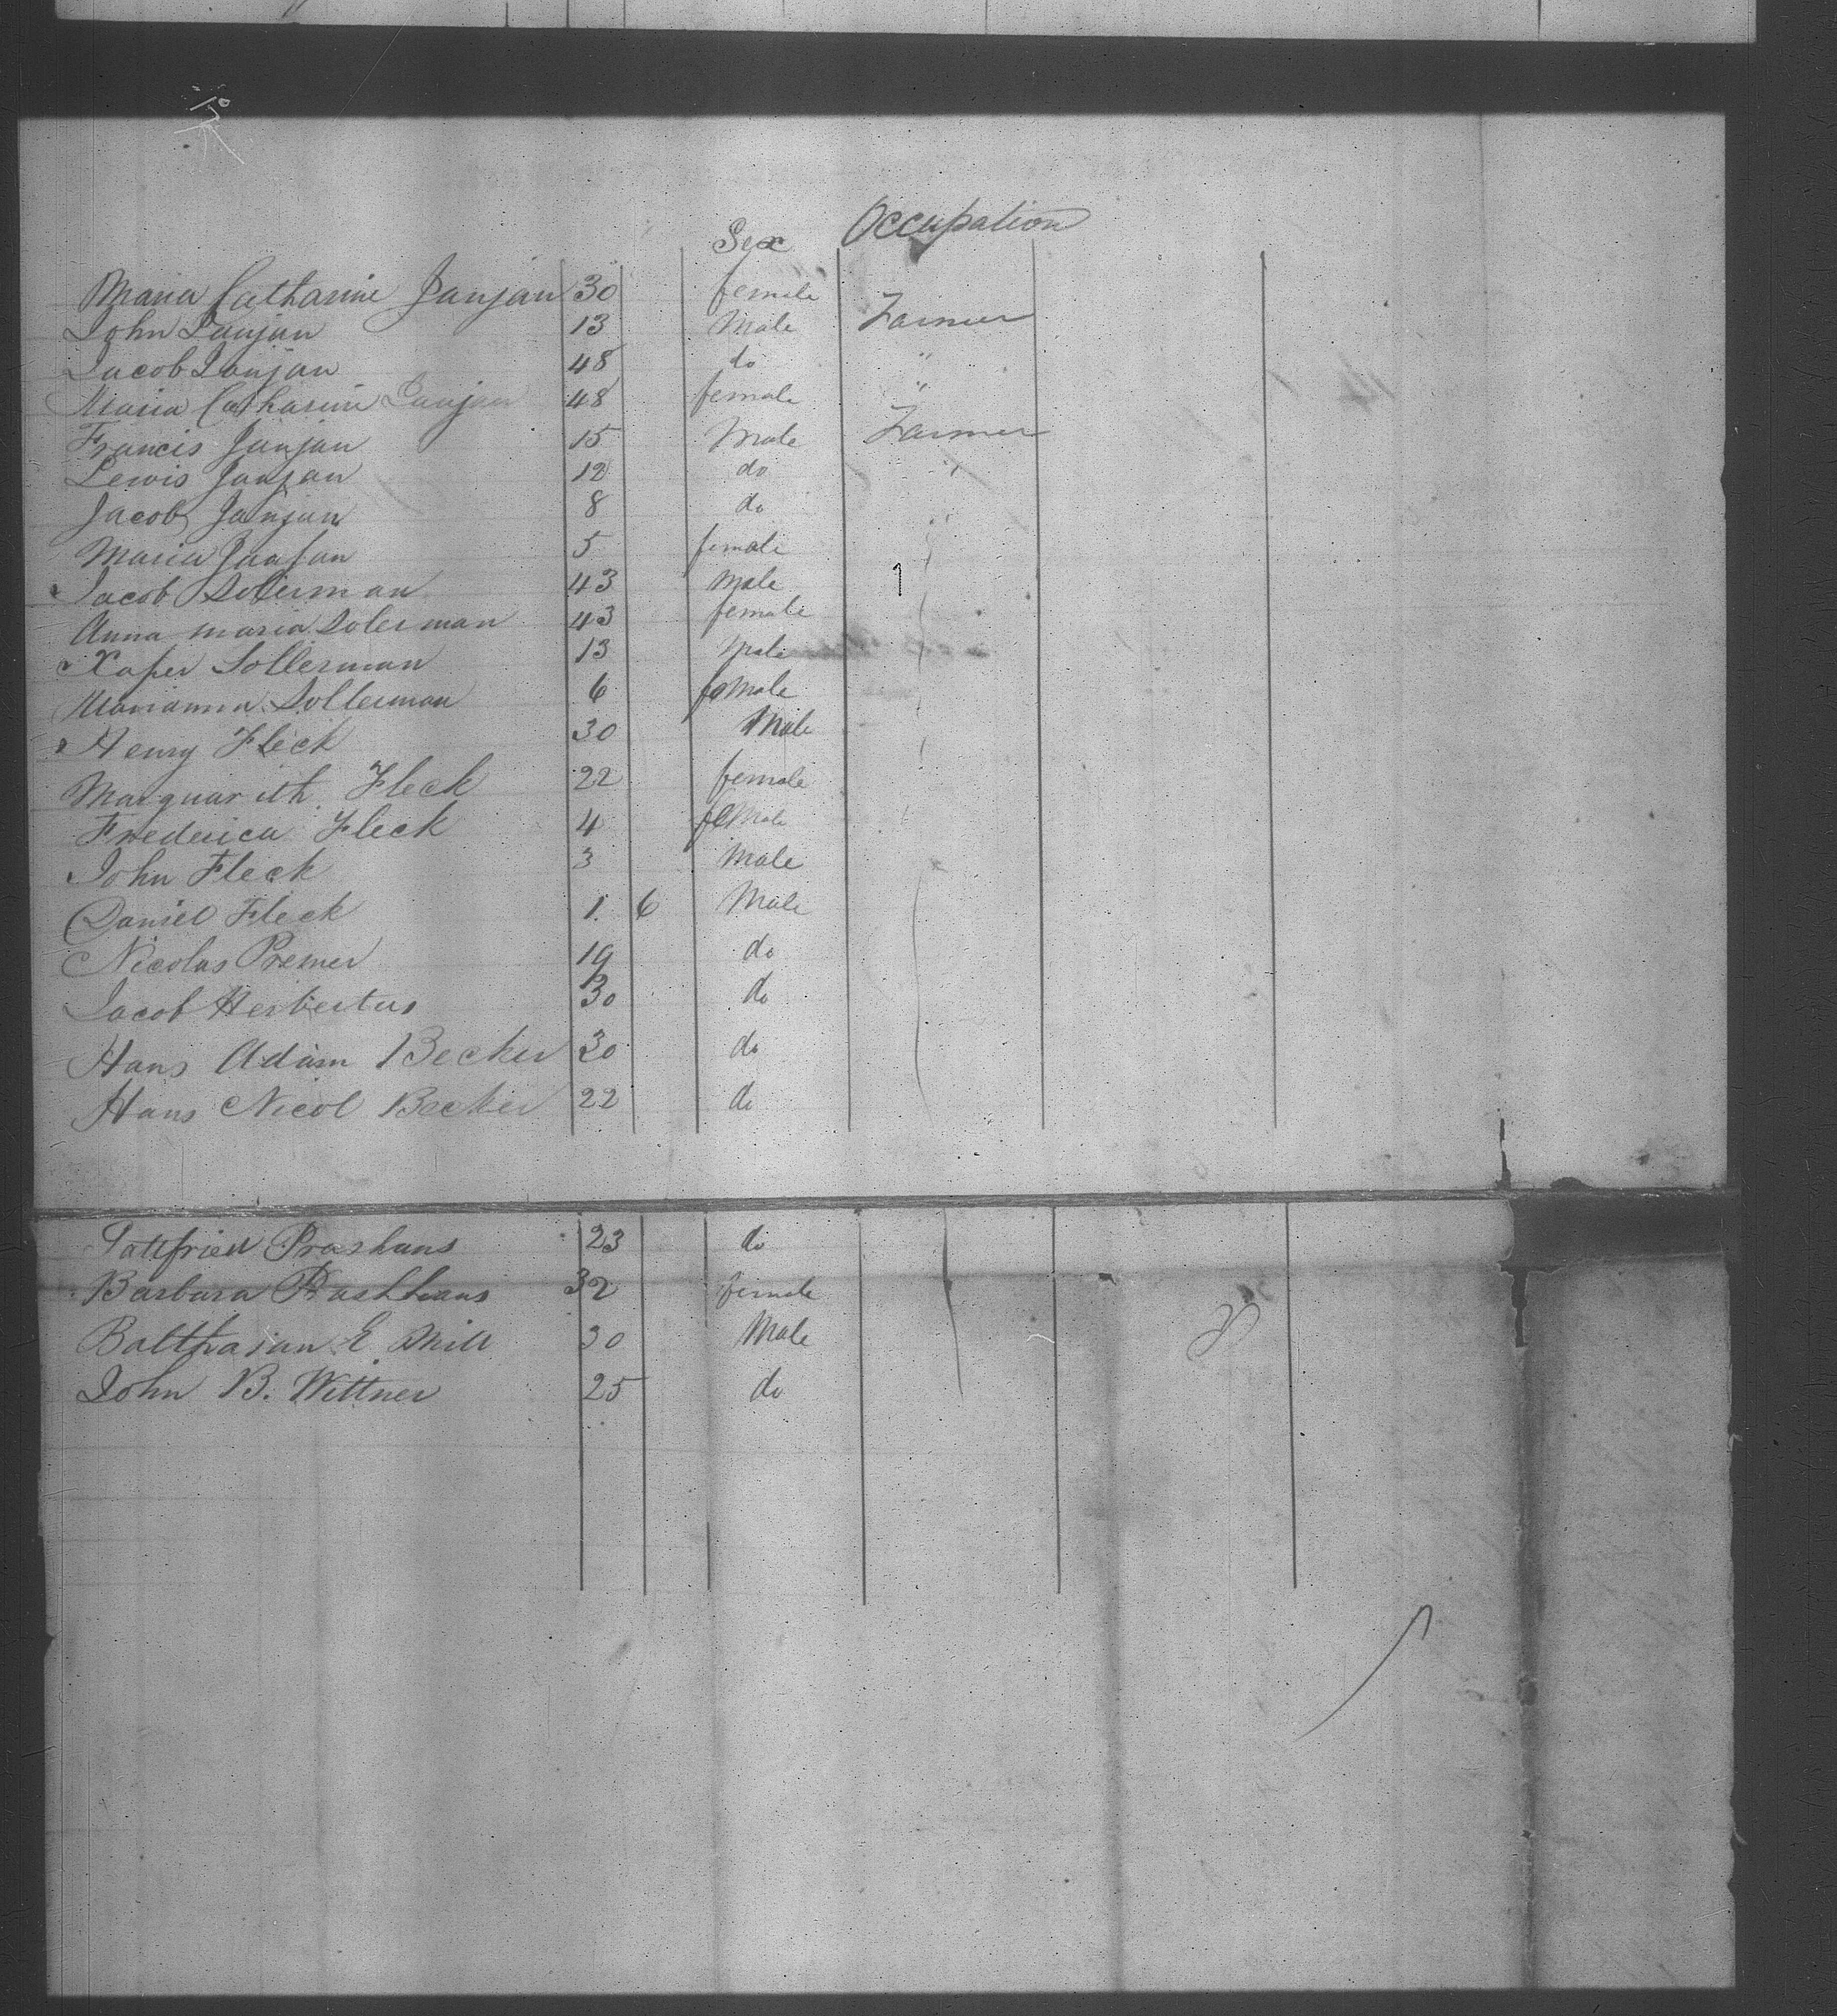 Sex Occupation
Maria Catharine Janjan 30 female
John Janjan 13 Male Farmer
Jacob Janjan 48 do "
Maria Catharine Janjan 48 female "
Francis Janjan 15 Male Farmer
Lewis Janjan 12 do "
Jacob Janjan 8 do "
Maria Janjan 5 female
Jacob Solerman 43 Male
Anna maria Solerman 43 female
Xafer Sollerman 13 Male
Marianna Sollerman 6 feMale
Henry Fleck 30 Male
Marguarith Fleck 22 female
Frederica Fleck 4 feMale
John Fleck 3 Male
Daniel Fleck 1 6 Male
Nicolas Premer 19 do
Jacob Herbertus 30 do
Hans Adam Becker 30 do
Hans Nicol Becker 22 do
Prashans 23 do
Barbara Prashhans 32 female
30 Male
John B. Wittner 25 do